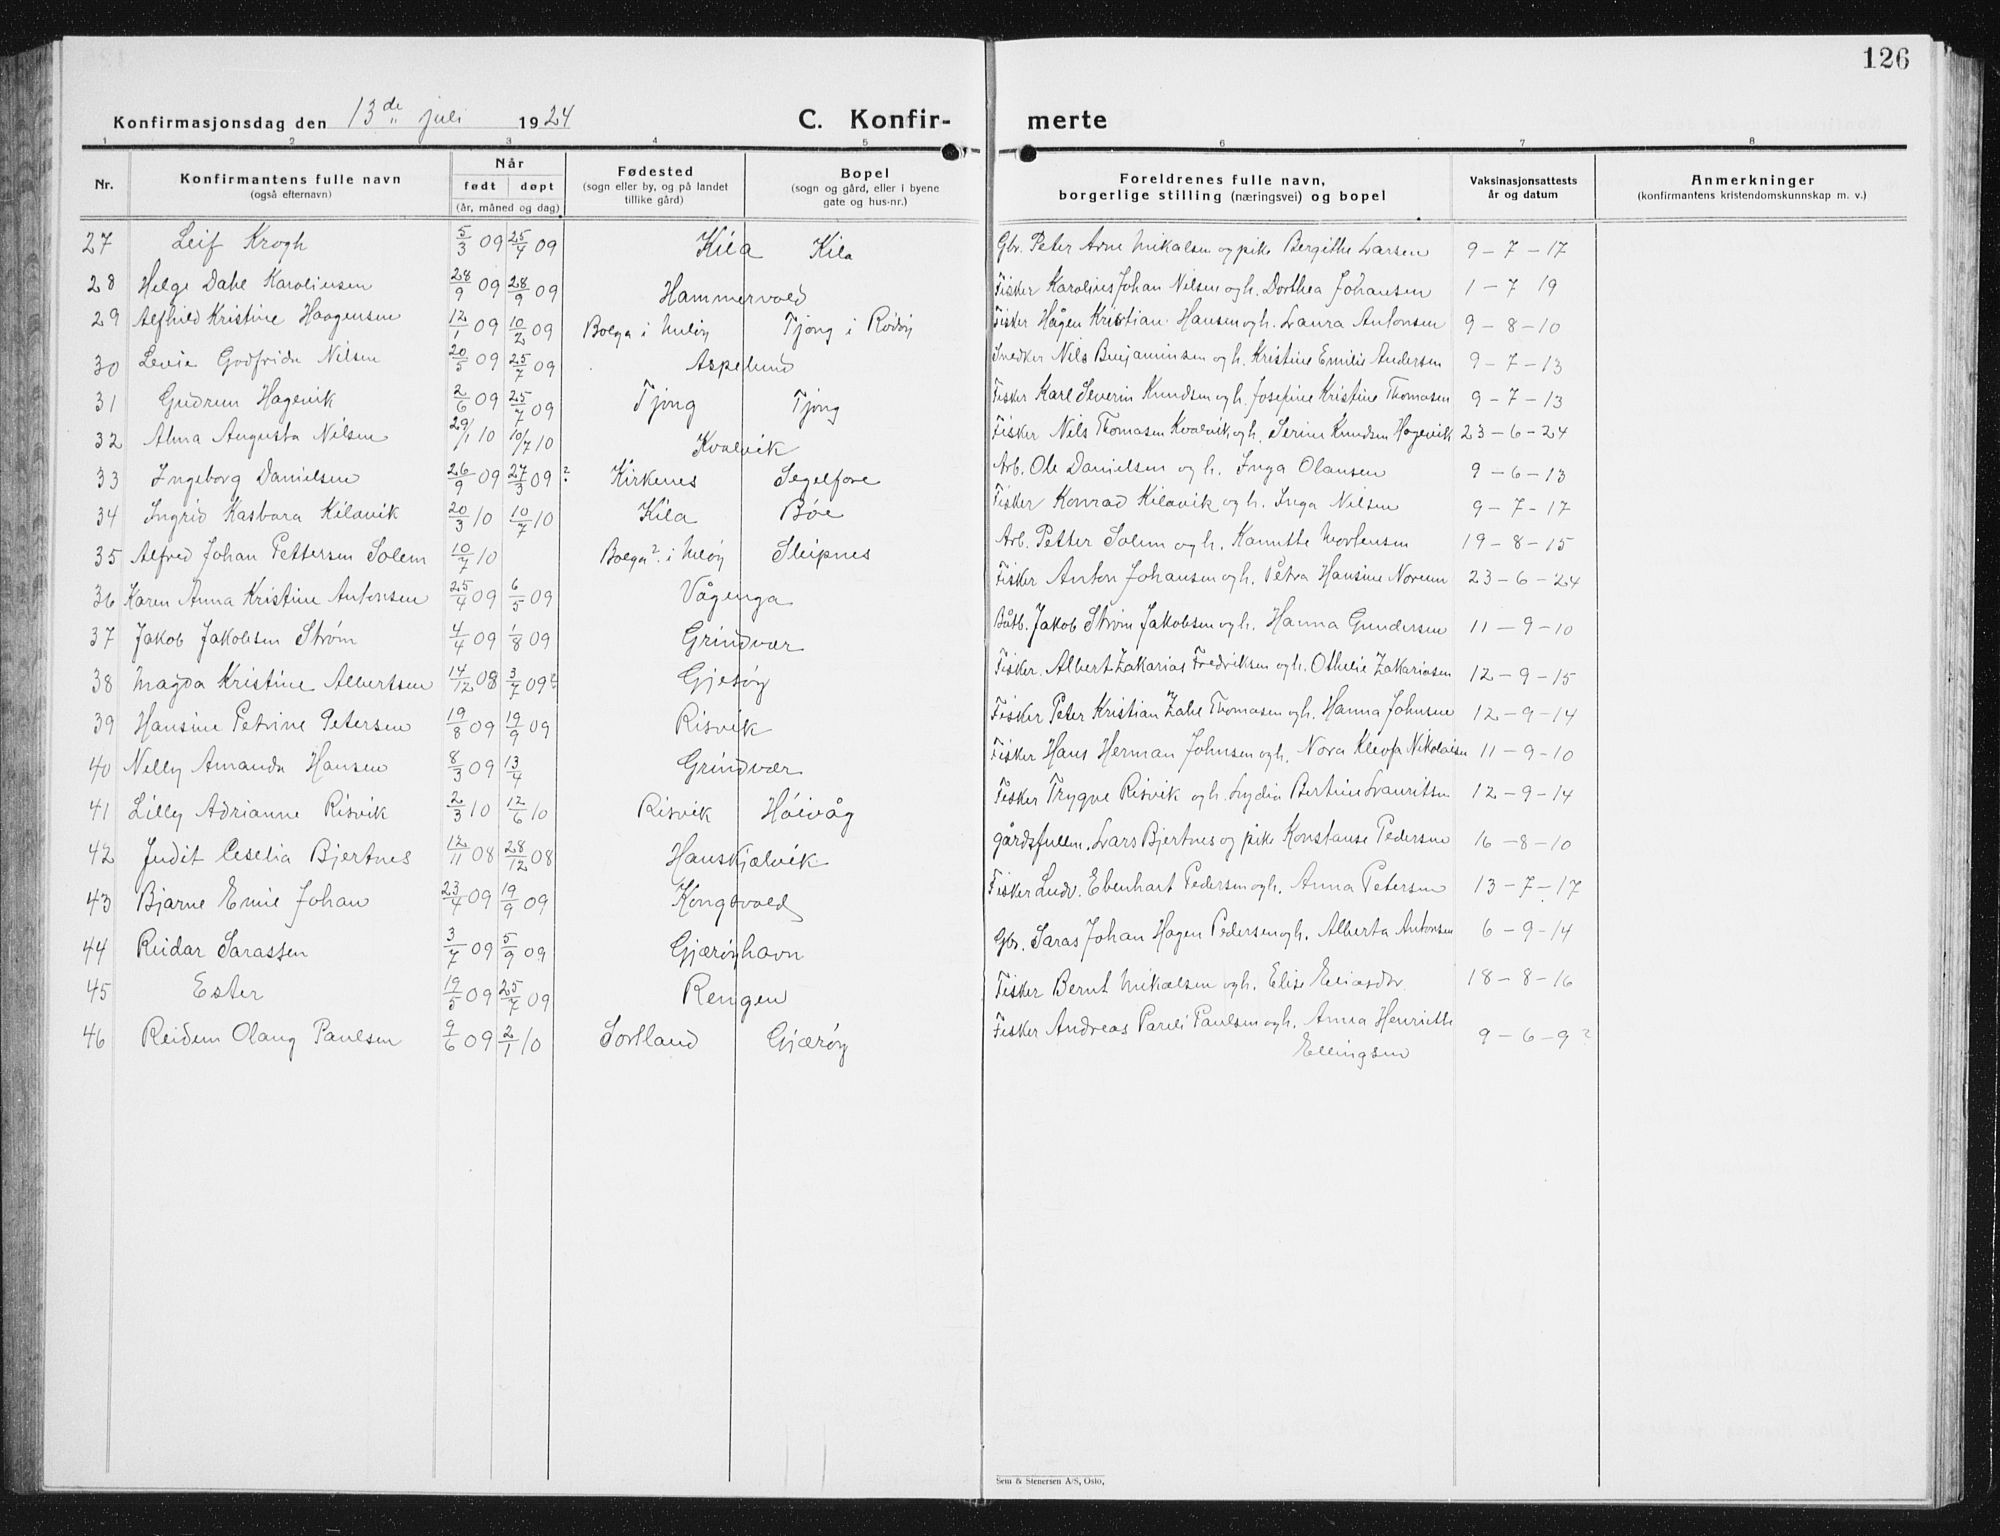 126
Konfirmasjonsdag den 13de juli 1924 C. Konfir- merte
1 2 3 4 5 6 7 8
Nr. Konfirmantens fulle navn (også efternavn) Når født døpt (år, måned og dag) Fødested (sogn eller by, og på landet tillike gård) Bopel (sogn og gård, eller i byene gate og hus-nr.) Foreldrenes fulle navn, borgerlige stilling (næringsvei) og bopel Vaksinasjonsattests år og datum Anmerkninger (konfirmantens kristendomskunnskap m. v.)
27 Leif Krogh 5/3 09 25/4 09 Kila Kila Gbr. Peter Arne Mikalsen og pike Bergithe Larsen 9-7-17
28 Helge Dahl Karolinsen 28/9 09 28/9 09 Hammervold Fisker Karolius Johan Nilsen og h. Dorthea Johansen 1-7 19
29 Alfhild Kristine Haagensen 12/1 09 10/2 09 Bolga i Meløy Tjong i Rødøy Fisker Hågen Kristian Hansen og h. Laura Antonsen 9-8-10
30 Levie Godfrida Nilsen 20/5 09 25/7 09 Aspelund Snedker Nils Benjaminsen og h. Kristine Emilie Andersen 9-7-13
31 Gudrun Hagevik 2/6 09 25/7 09 Tjong Tjong Fisker Karl Severin Knudsen og h. Josefine Kristine Thomasen 9-7-13
32 Alma Augusta Nilsen 29/1 10 10/7 10 Kvalvik Fisker Nils Thomasen Kvalvik og h. Serine Knudsen Hagevik 23-6-24
33 Ingeborg Danielsen 26/9 09 27/3 09? Kirkenes Segelfore Arb. Ole Danielsen og h. Inga Olausen 9-6-13
34 Ingrid Kasbara Kilavik 20/3 10 10/7 10 Kila Bøe Fisker Konrad Kilavik og h. Inga Nilsen 9-7-17
35 Alfred Johan Pettersen Solem 10/7 10 Bolga? i Meløy Sleipnes Arb. Petter Solem og h. Kanutte Mortensen 19-8-15
36 Karen Anna Kristine Antonsen 25/4 09 6/5 09 Vågenga Fisker Anton Johansen og h. Petra Hansine Noreun 23-6-24
37 Jakob Jakobsen Strøm 4/4 09 1/8 09 Grindvær Båtb. Jakob Strøm Jakobsen og h. Hanna Gundersen 11-9-10
38 Magda Kristine Albertsen 14/12 08 3/7 09? Gjesøy Fisker. Albert Zakarias Fredriksen og h. Othelie Zakariasen 12-9-15
39 Hansine Petrine Petersen 19/8 09 19/9 09 Risvik Fisker Peter Kristian Zahl Thomasen og h. Hanna Johnsen 12-9-14
40 Nelly Amanda Hansen 8/3 09 13/4 Grindvær Fisker Hans Herman Johnsen og h. Nora Kleofa Nikolaisen 11-9-10
41 Lilly Adrianne Risvik 2/3 10 12/6 10 Risvik Høivåg Fisker Trygve Risvik og h. Lydia Bertine Lauritsen 12-9-14
42 Judit Ceselia Bjertnes 12/11 08 28/12 08 Hauskjælvik gårdsfullm. Lars Bjertnes og pike Konstanse Pedersen 16-8-10
43 Bjarne Emil Johan 23/4 09 19/9 09 Kongsvold Fisker Ludv. Ebenhart Pedersen og h. Anna Petersen 13-7-17
44 Reidar Sarassen 3/7 09 5/9 09 Gjærøyhavn Gbr. Saras Johan Hagen Pedersen og h. Alberta Antonsen 6-9-14
45 Ester 19/5 09 25/7 09 Rengen Fisker Bernt Mikalsen og h. Elise Eliasdtr. 18-8-16
46 Reidun Olaug Paulsen 9/6 09 2/1 10 Sortland Gjærøy Fisker Andreas Pareli Paulsen og h. Anna Henriette Ellingsen 9-6-9?
Sem & Stenersen A/S, Oslo.